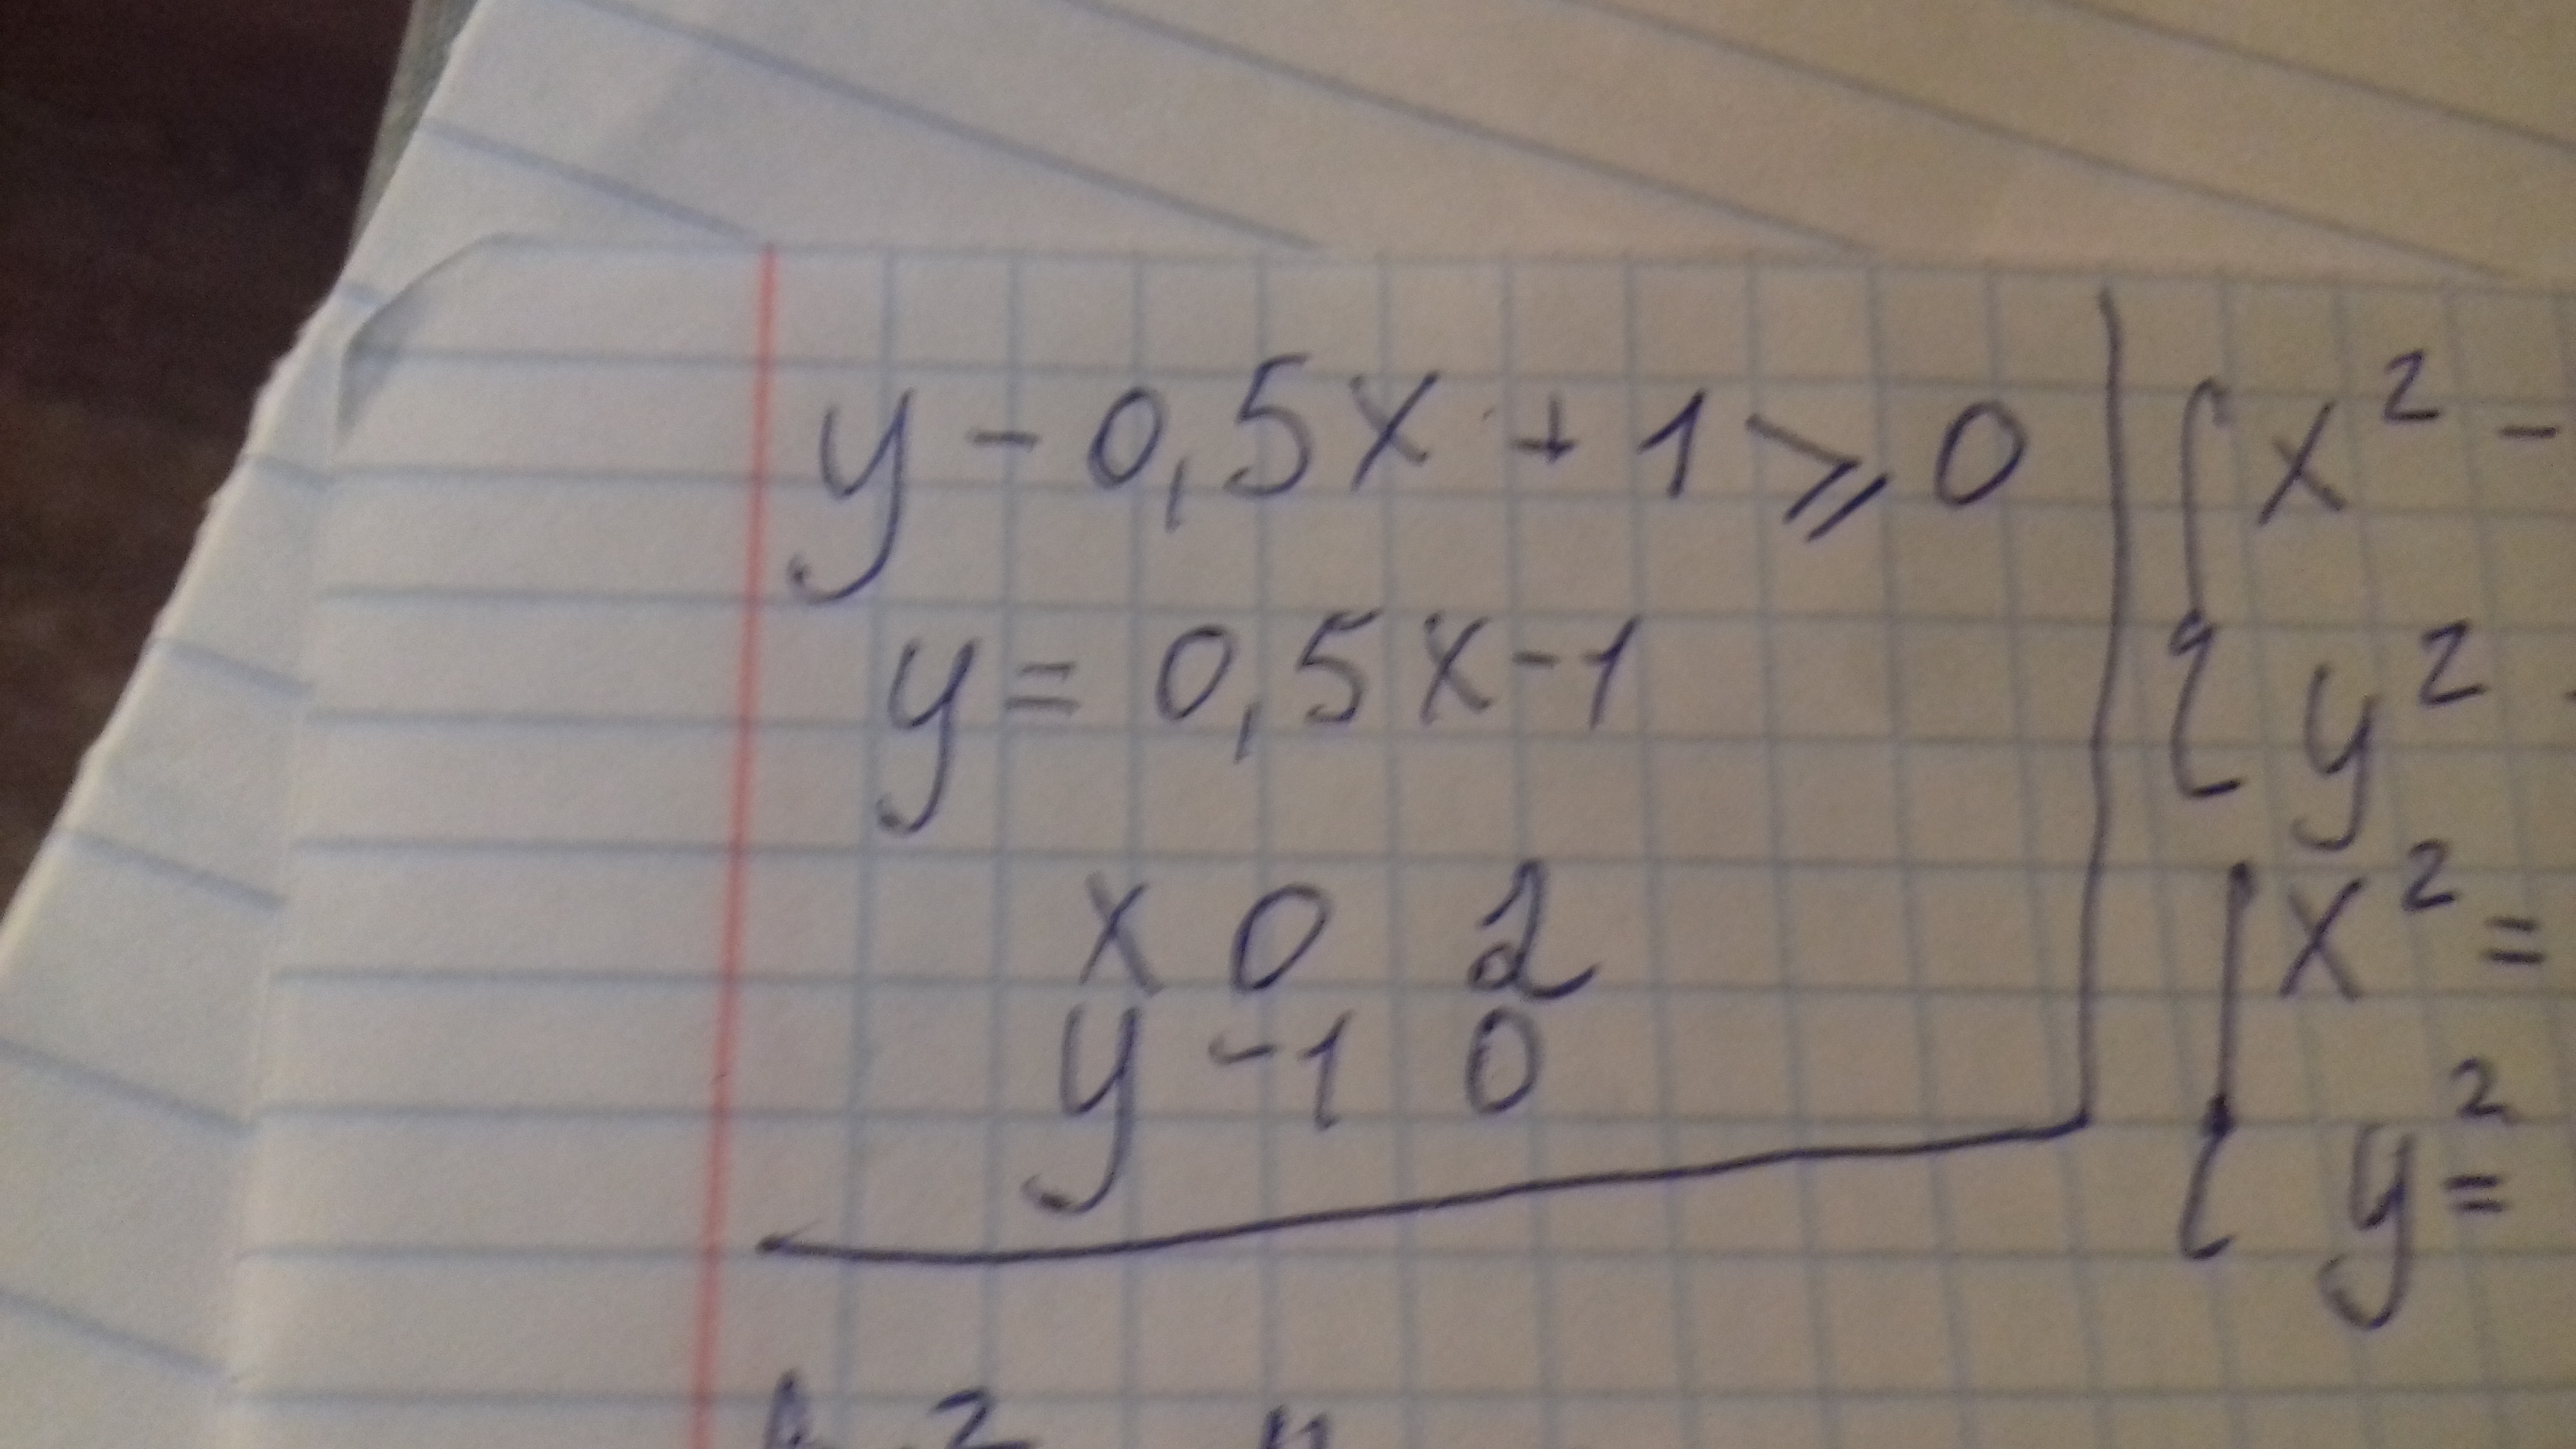 y - 0,5x + 1 ⩾ 0
y = 0,5x - 1
x 0 2
y -1 0
{ x² -
{ y²
{ x² =
{ y² =